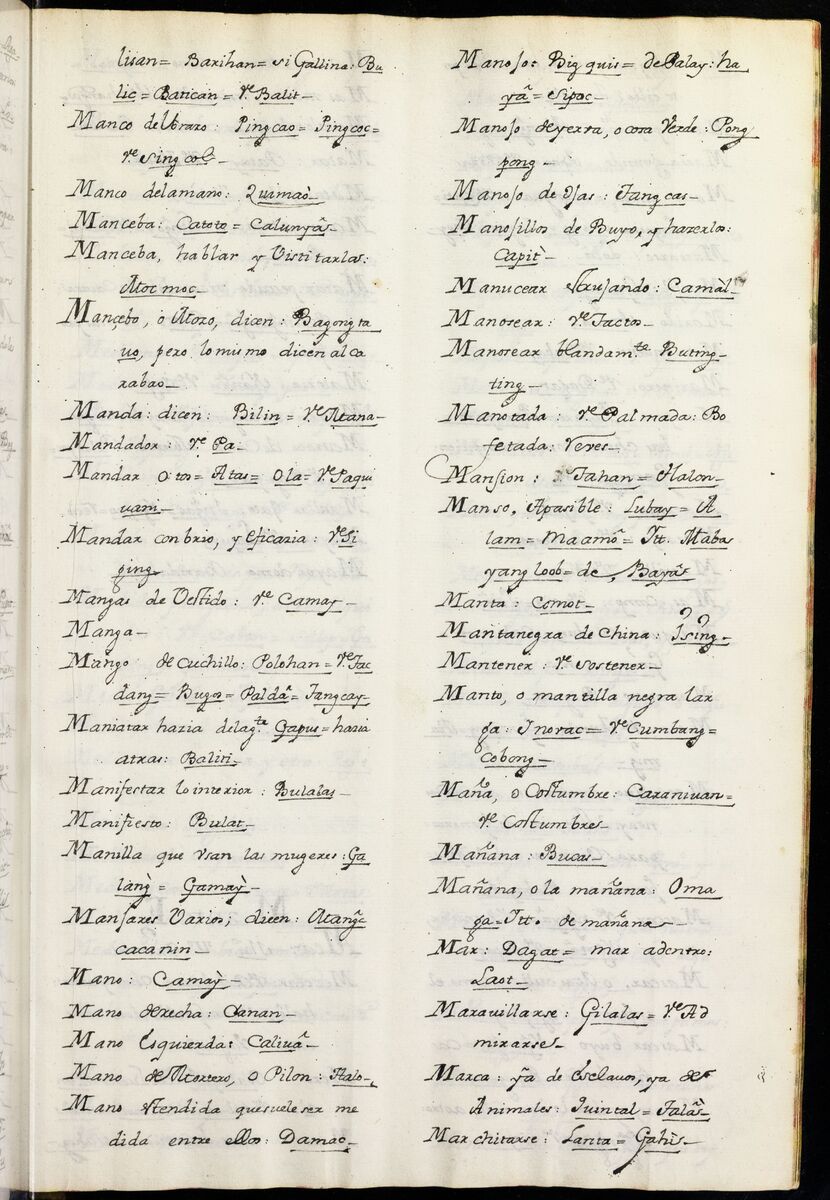 lisan = Barihan = si Gallina: Bu
lic = Batican = Vᵉ Balit
Manco del brazo: Pingcao = Pingcoc =
vᵉ singcol
Manco delamano: Quimaò
Manceba: Catoto = Calunyâ
Manceba, hablar y Visitarlas:
Mocmoc
Mancebo, o Mozo, dicen: Bagongta
uo, pero lo mismo dicen al ca
rabao
Manda: dicen: Bilin = Vᵉ Mana
Mandador: vᵉ Pa
Mandar otos = Atas = Ola = Vᵉ Paqui
uam
Mandar con brio, y eficazia: Vᵉ Si
ging
Mangas de Vestido: vᵉ Camay
Manga
Mango de cuchillo: Polohan = Vᵉ Tac
dang = Bugos = Paldâ = Tangcay
Maniatar hazia delagᵗᵉ Gapus = hazia
atras: Baliti
Manifestar lo interior: Bulalas
Manifiesto: Bulat
Manilla que vsan las mugeres: Ga
lang = Gamay
Manjares Varios; dicen: Mangc
cacanin
Mano: Camay
Mano derecha: Canan
Mano Esquierda: Caliuâ
Mano de Mortero, o Pilon: Halo
Mano stendida que suele ser me
dida entre ellos: Damac
Manojo: Bigquis = de Palay: ha
yâ = Sipoc
Manojo de yerra, o cosa Verde: Pong
pong
Manojo de Ojas: Tangcas
Manojillos de Buyo, y hazerlos:
Capit
Manucear strujando: Camàl
Manosear: vᵉ Tactos
Manosear blandamᵗᵉ Buting
ting
Manotada: vᵉ Palmada: Bo
fetada: Veres
Mansion: Tahan = Halon
Manso, Apasible: Lubay = A
lam = Maamô = Itt. Maba
yang loob = de, Bayâ
Manta: Comot
Mantanegra de China: Ising
Mantener: vᵉ sostener
Manto, o mantilla negra lar
ga: Inorac = vᵉ Cumbang =
Cobong
Maña, o Costumbre: Caraniuan =
vᵉ Costumbres
Mañana: Bucas
Mañana, o la mañana: Oma
ga = Itt. de mañana
Mar: Dagat = mar adentro:
Laot
Marauillarse: Gilalas = vᵉ Ad
mirarse
Marca: ya de Esclauos, ya de
Animales: Quintal = Talàs
Marchitarse: Lanta = Gahis